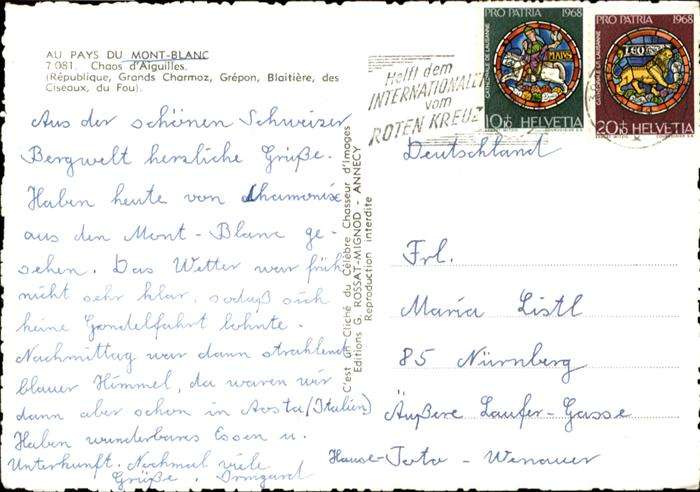 AU PAYS DU MONT-BLANC
7 081. Chaos d'Aiguilles.
(République, Grands Charmoz, Grépon, Blaitière, des
Ciseaux, du Fou).
Aus der schönen Schweizer
Bergwelt herzliche Grüße.
Haben heute von Chamonix
aus den Mont-Blanc ge-
sehen. Das Wetter war früh
nicht sehr klar, sodaß sich
keine Gondelfahrt lohnte.
Nachmittag war dann strahlend
blauer Himmel, da waren wir
dann aber schon in Aosta/(Italien)
Haben wunderbares Essen u.
Unterkunft. Nochmal viele
Grüße. Irmgard
C'est un Cliché du Célèbre Chasseur d'Images
Editions G. ROSSAT-MIGNOD - ANNECY
Reproduction interdite
Helft dem
INTERNATIONALEN
vom
ROTEN KREUZ
PRO PATRIA 1968
CATHEDRALE DE LAUSANNE
MAIVS
10+10 HELVETIA
PRO PATRIA 1968
CATHEDRALE DE LAUSANNE
LEO
20+10 HELVETIA
Deutschland
Frl.
Maria Listl
85 Nürnberg
Äußere Laufer-Gasse